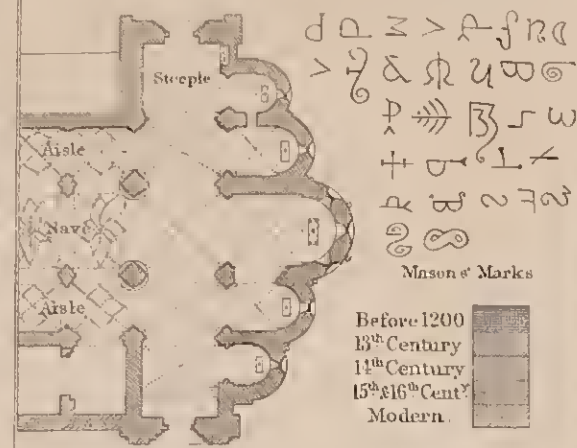 Steeple
Aisle
Nave
Aisle
Masons' Marks
Before 1200
13th Century
14th Century
15th & 16th Centy
Modern